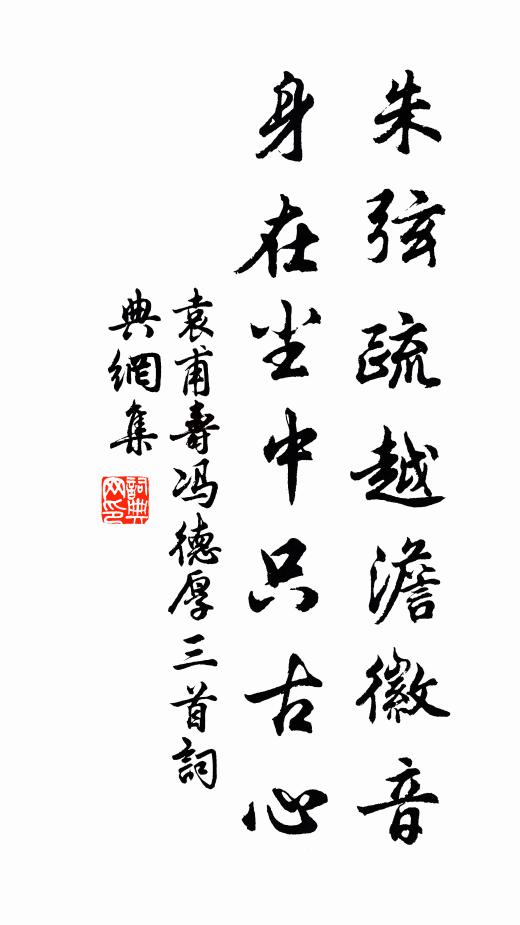 朱弦疏越澹徽音
身在尘中只古心
袁甫壽冯德厚三首詞
典網集
詞典网印